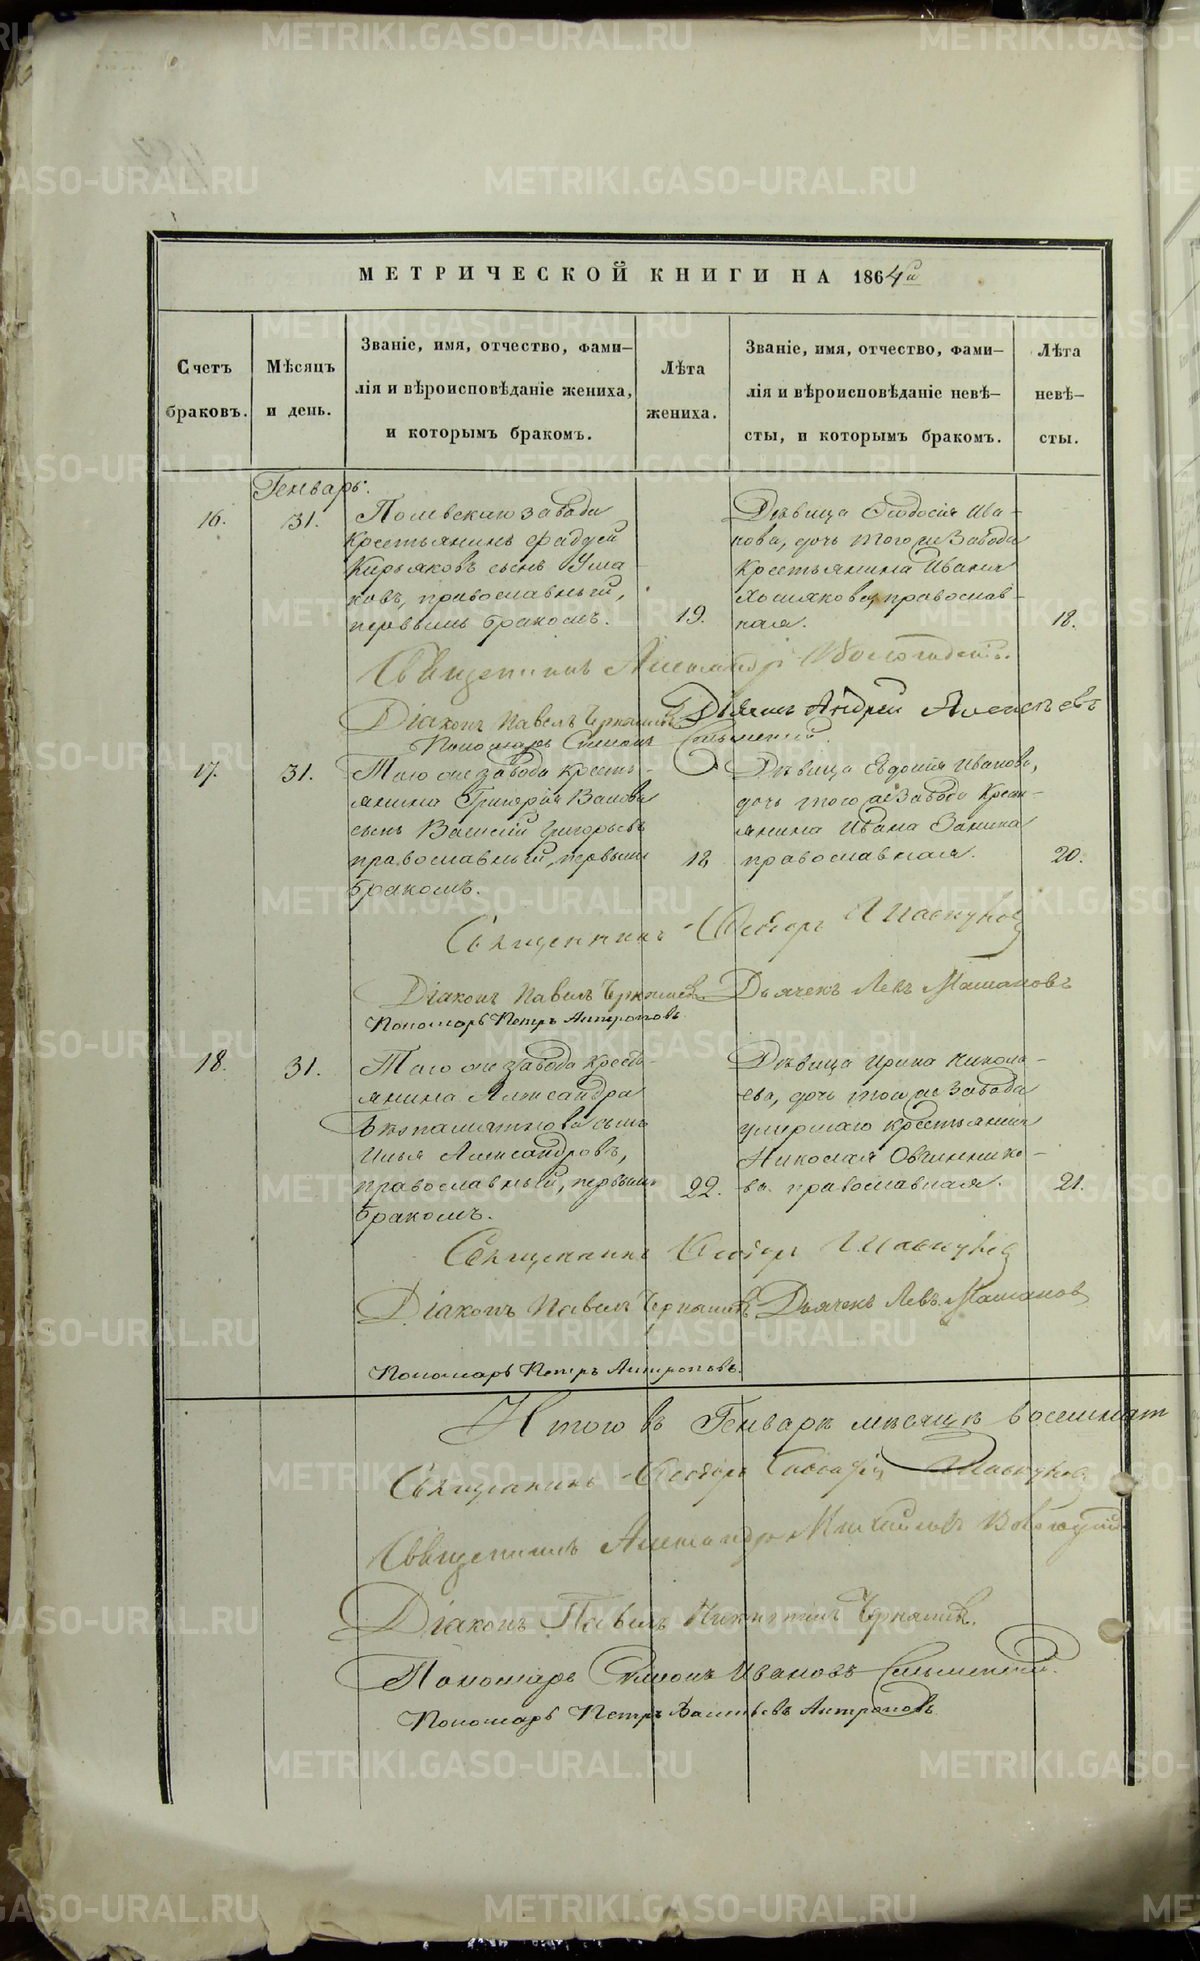 МЕТРИЧЕСКОЙ КНИГИ НА 1864й
Счетъ браковъ.
Мѣсяцъ и день.
Званіе, имя, отчество, фами-
лія и вѣроисповѣданіе жениха,
и которымъ бракомъ.
Лѣта жениха.
Званіе, имя, отчество, фами-
лія и вѣроисповѣданіе невѣ-
сты, и которымъ бракомъ.
Лѣта невѣ-
сты.
Генварь.
16.
31.
Полевскаго завода
крестьянинъ Фаддей
Кирьяковъ сынъ Уша
ковъ, православный,
первымъ бракомъ.
19.
Дѣвица Ѳеодосія Ива-
нова, дочь того же завода
крестьянина Ивана
православ-
ная.
18.
Священникъ Александръ Вологодскій.
Діаконъ Павелъ Дьячекъ Андрей Алексѣевъ
Пономарь Симеонъ
17.
31.
Того же завода кресть-
янина Григорія
сынъ Василій Григорьевъ
православный, первымъ
бракомъ.
18
Дѣвица Евдокія Иванова,
дочь того же завода крест-
янина Ивана Зюкина
православная.
20.
Священникъ Ѳеодоръ Шавкуновъ
Діаконъ Павелъ Дьячекъ Левъ Машановъ
Пономарь Петръ Антроповъ
18.
31.
Того же завода кресть-
янина Александра
Безпаматнова сынъ
Илья Александровъ,
православный, первымъ
бракомъ.
22.
Дѣвица Ирина Никола-
ева, дочь того же завода
умершаго крестьянина
Николая Овчиннико-
ва православная.
21.
Священникъ Ѳеодоръ Шавкуновъ
Діаконъ Павелъ Дьячекъ Левъ Машановъ
Пономарь Петръ Антроповъ.
Итого въ Генварѣ мѣсяцѣ восемнат
Священникъ Ѳеодоръ Шавкуновъ
Священникъ Александръ Михайловъ Вологодскій
Діаконъ Павелъ Никитинъ
Пономарь Симеонъ Ивановъ
Пономарь Петръ Васильевъ Антроповъ
METRIKI.GASO-URAL.RU